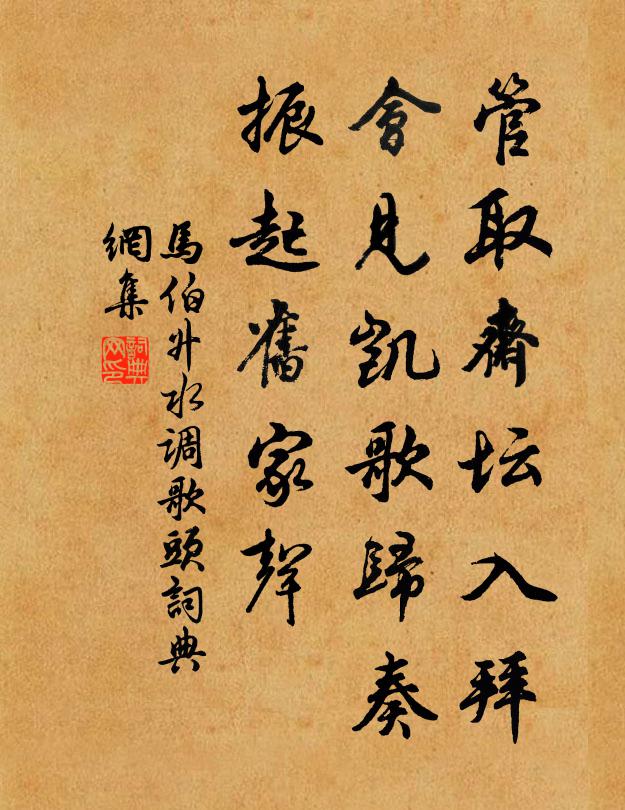 管取齋坛入拜
會見凱歌歸奏
振起舊家聲
馬伯升水调歌頭詞典
網集
詞典
网印